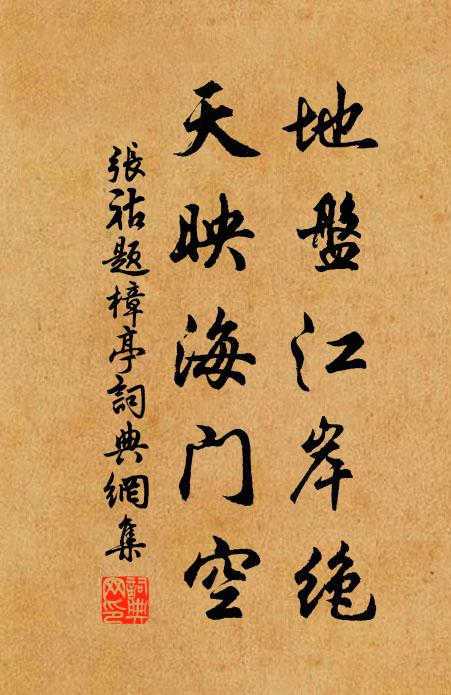 地盤江岸绝
天映海门空
張祜题樟亭詞典網集
詞典
网印